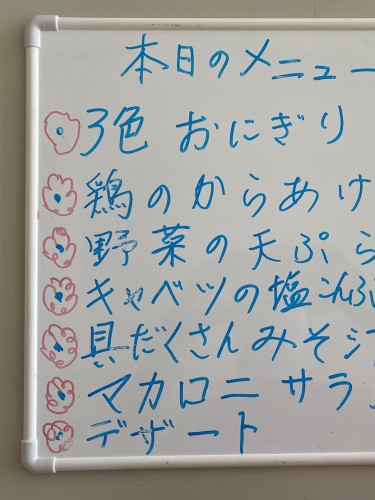 本日のメニュー
3色 おにぎり
鶏のからあけ
野菜の天ぷら
キャベツの塩こんぶ
具だくさんみそ
マカロニ サラ
デザート